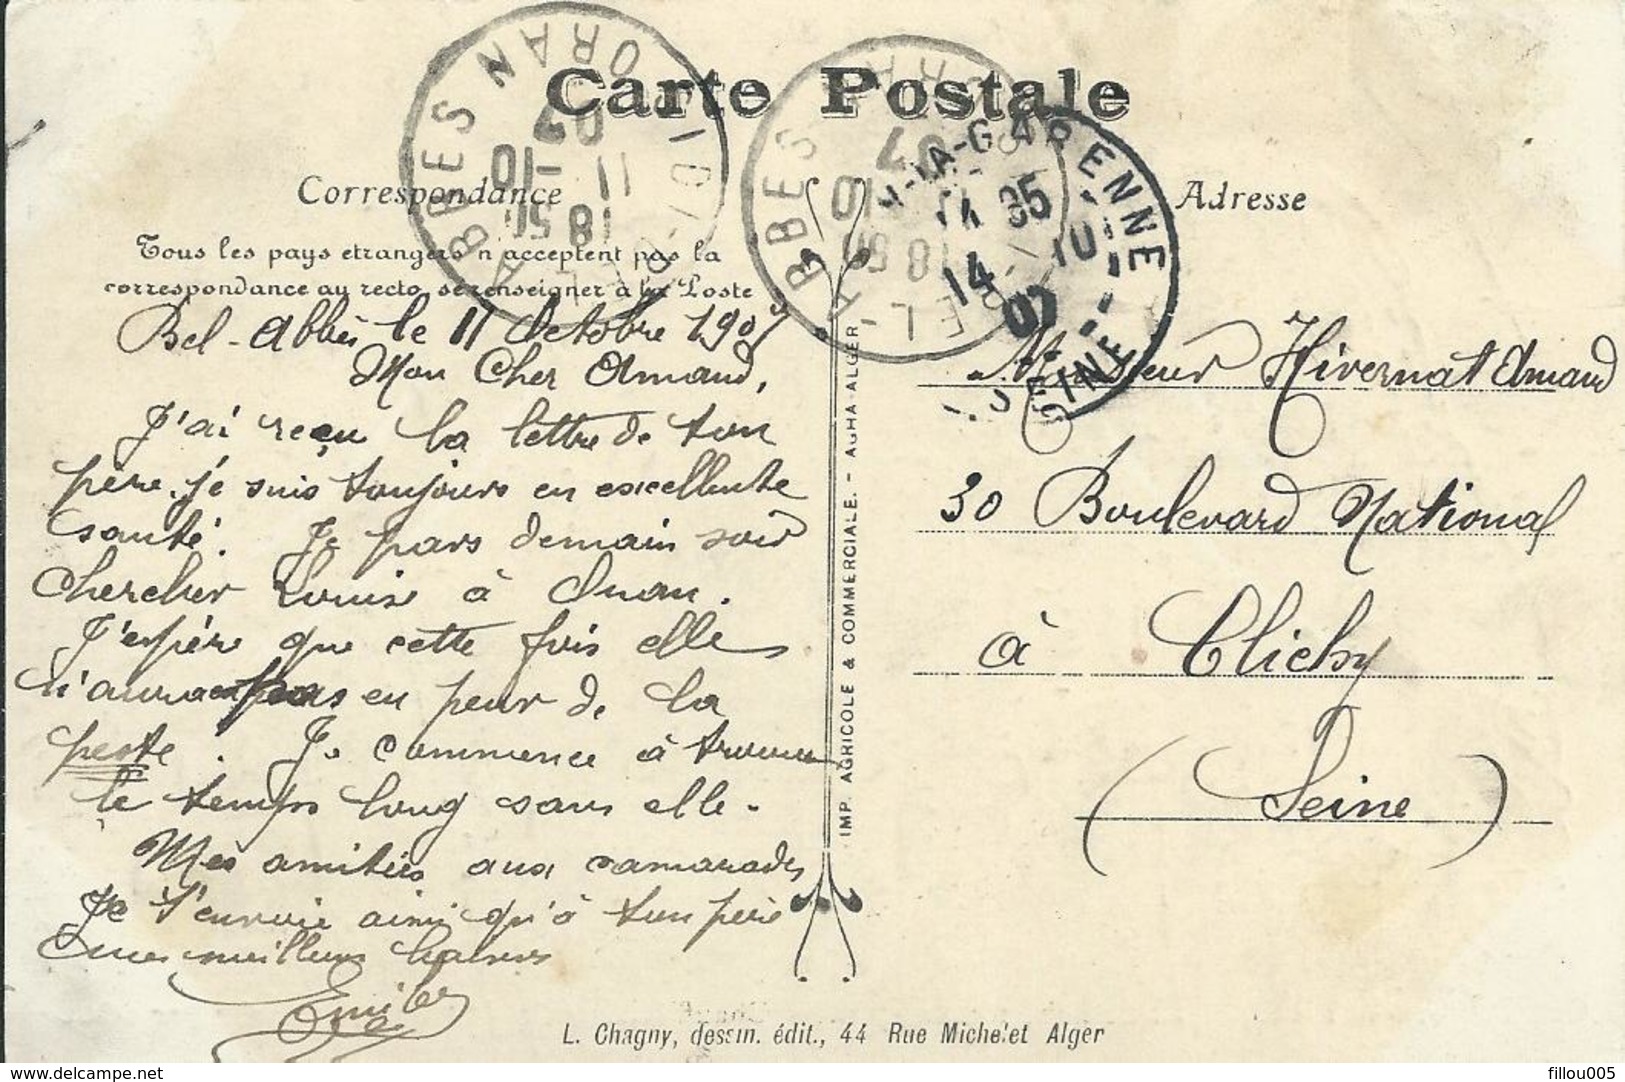 Carte Postale
Correspondance
Adresse
Tous les pays etrangers n'acceptent pas la
correspondance au recto, se renseigner à la Poste
Bel-Abbès le 11 Octobre 1907
Mon Cher Armand,
J'ai reçu la lettre de ton
père. je suis toujours en excellente
santé. Je pars demain soir
chercher Louise à Oran.
J'espère que cette fois elle
n'aura pas eu peur de la
peste. Je commence à trouver
le temps long sans elle.
Mes amitiés aux camarades
Je t'envoie ainsi qu'à ton père
mes meilleurs baisers
Emile
Monsieur Hivernat Armand
30 Boulevard National
à Clichy
(Seine)
IMP. AGRICOLE & COMMERCIALE. - AGHA-ALGER
L. Chagny, dessin. édit., 44 Rue Michelet Alger
ABBES ORAN
18 50
11 -10
07
ABBES
18 50
10
07
LA-GARENNE
SEINE
14 35
14 10
07
delcampe.net
fillou005